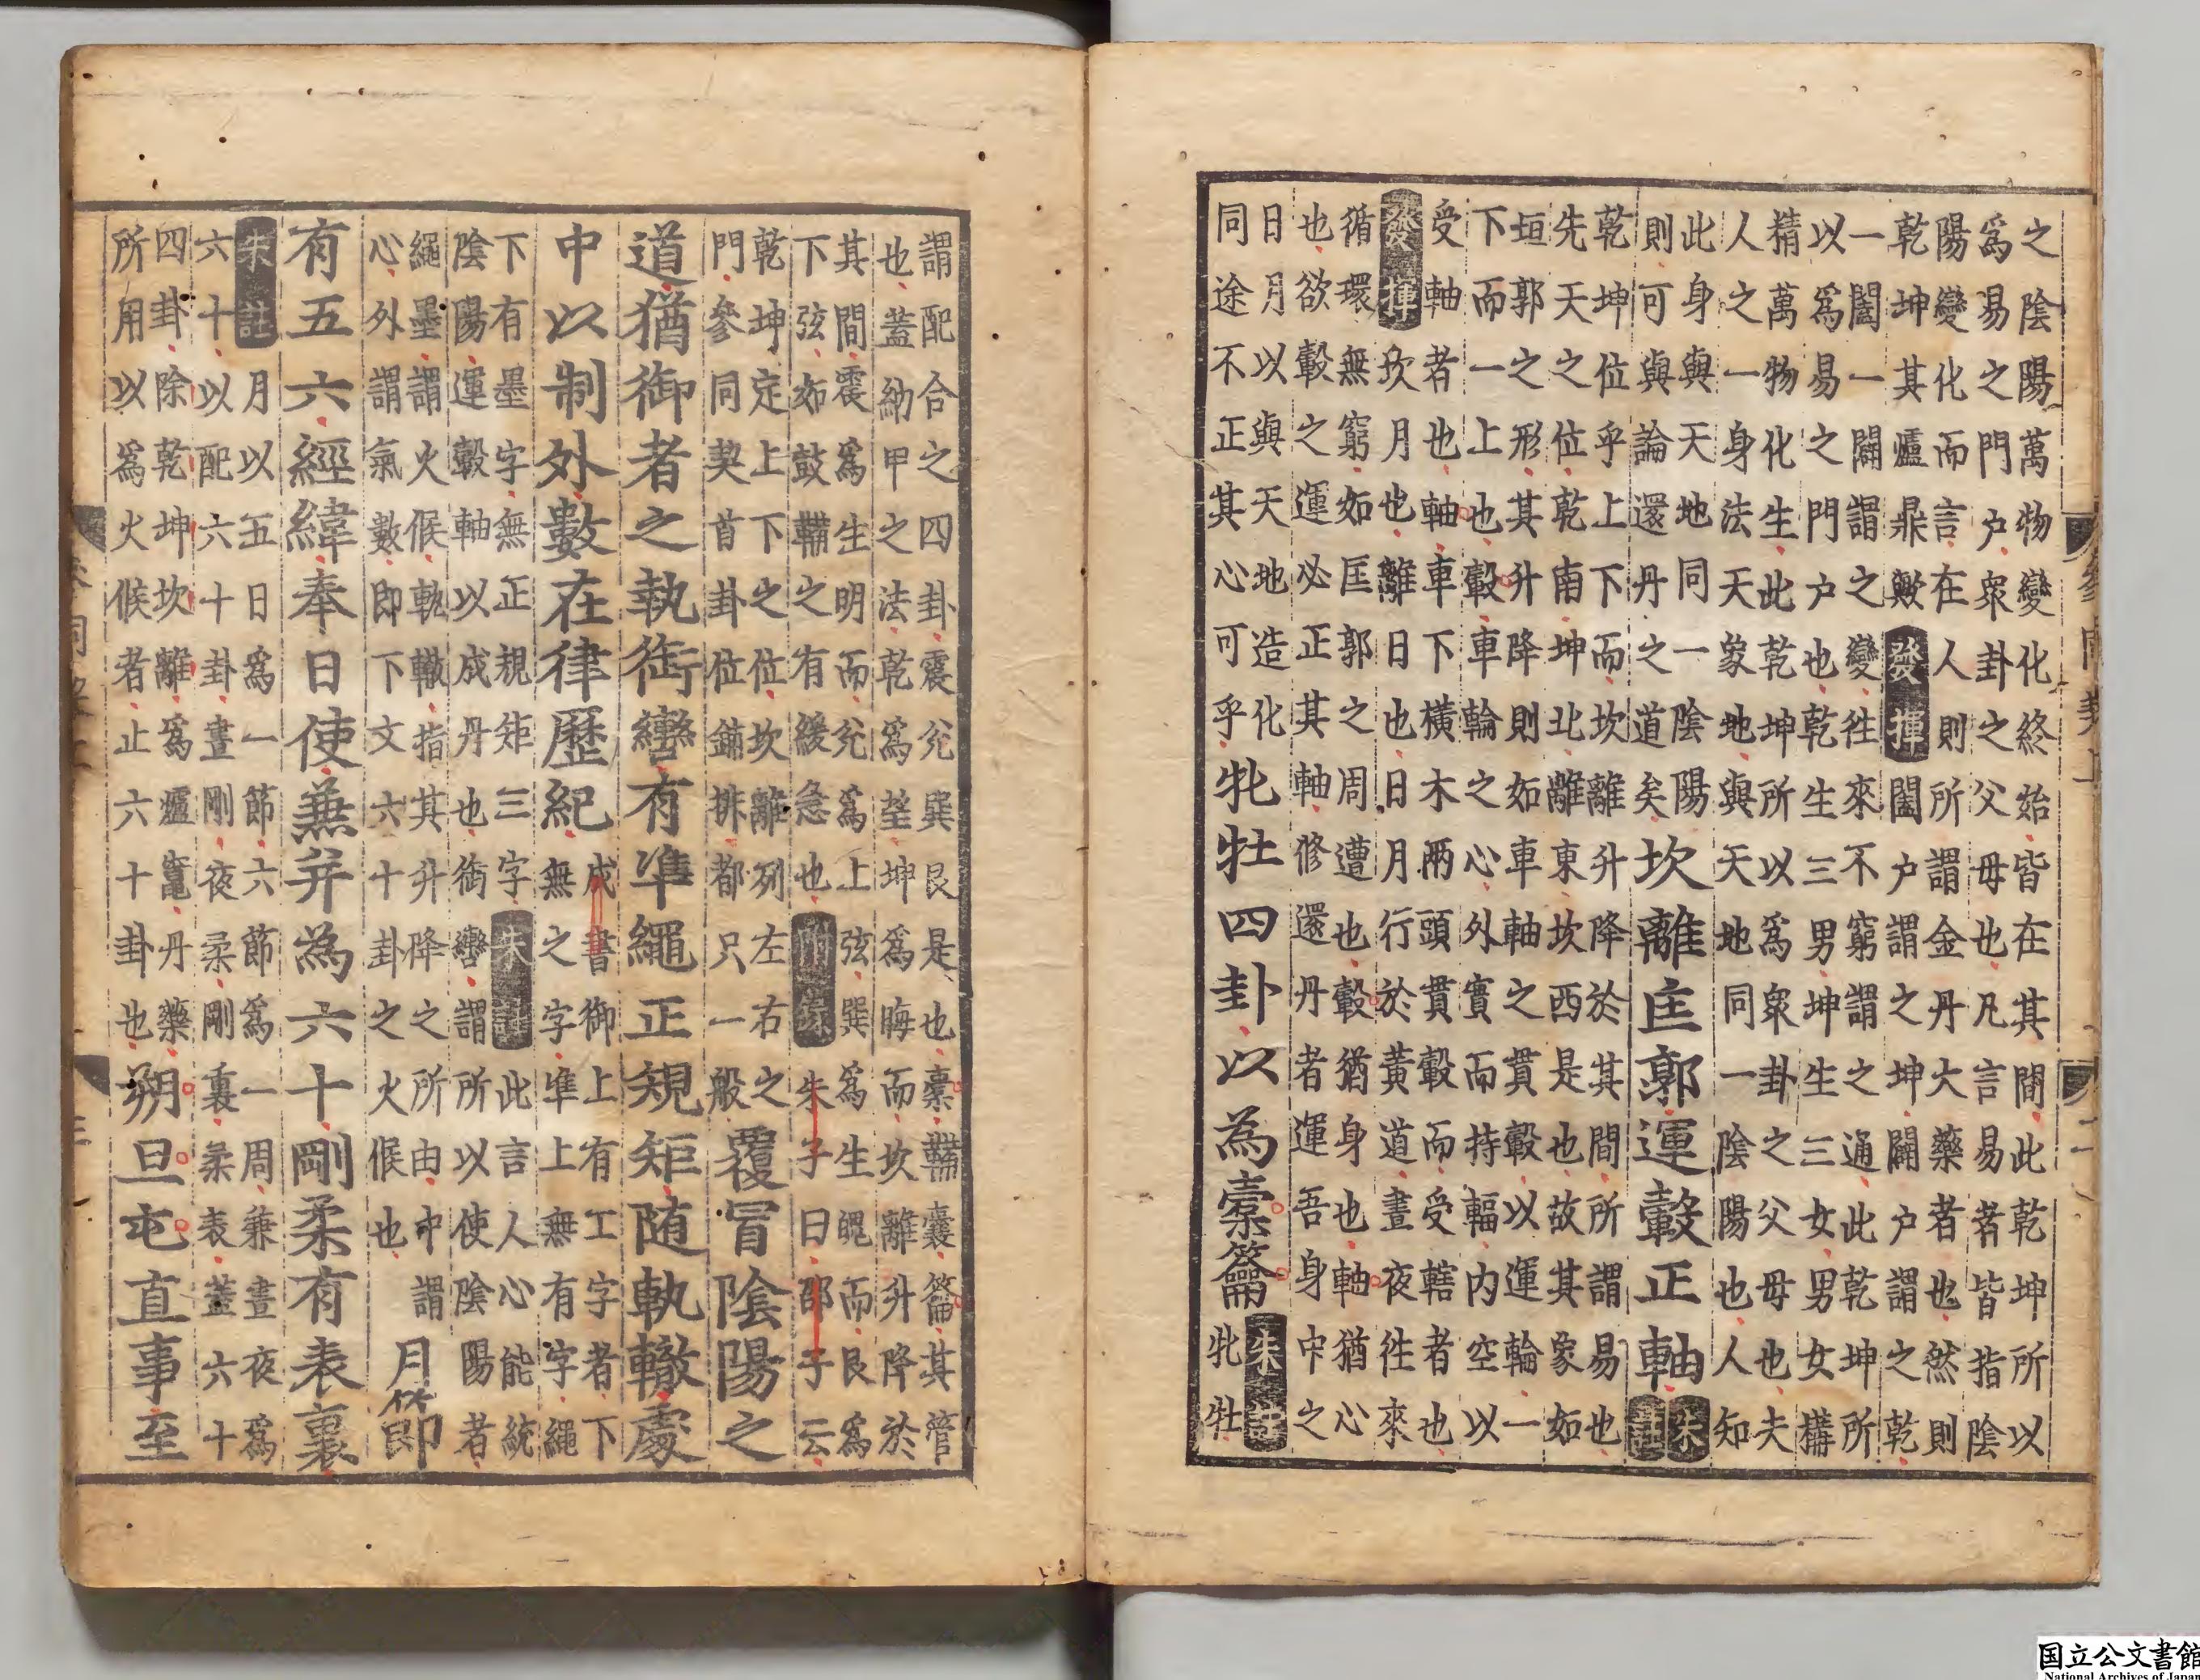 之陰陽萬物變化終始皆在其間此乾坤所以
爲易之門户衆卦之父母也凡言易者皆指陰
陽變化而言在人則所謂金丹大藥者也然則
乾坤其爐鼎歟 發揮 闔户謂之坤闢户謂之乾
一闔一闢謂之變徃來不窮謂之通此乾坤所
以爲易之門户也乾生三男坤生三女男女構
精萬物化生此乾坤所以爲衆卦之父母也夫
人之一身法天象地與天地同一陰陽也人知
此身與天地同一陰陽
則可與論還丹之道矣
坎離匡郭運轂正軸 朱註
乾坤位乎上下而坎離升降於其間所謂易也
先天之位乾南坤北離東坎西是也故其象如
垣郭之形其升降則如車軸之貫轂以運輪一
下而一上也轂車輪之心外實而持輻内空以
受軸者也軸車下橫木兩頭貫轂而受轄者也
發揮 坎月也離日也日月行於黄道晝夜徃來
循環無窮如匡郭之周遭也轂猶身也軸猶心
也欲轂之運必正其軸修還丹者運吾身中之
日月以與天地造化
同途不正其心可乎
牝牡四卦以為槖籥 朱註 牝牡
謂配合之四卦震兊巽艮是也槖鞴囊籥其管
也蓋納甲之法乾爲望坤爲晦而坎離升降於
其間震爲生明而兊爲上弦巽爲生魄而艮爲
下弦如鼓鞴之有緩急也 附錄 朱子曰邵子云
乾坤定上下之位坎離列左右之
門參同契首卦位鋪排都只一般
覆冒陰陽之
道猶御者之執銜轡有凖繩正規矩随軌轍處
中以制外數在律歷紀
成書御上有工字者下
無之字凖上無有字繩
下有墨字無正規矩三字 朱註 此言人心能統
陰陽運轂軸以成丹也銜轡謂所以使陰陽者
繩墨謂火候軌轍指其升降之所由中謂
心外謂氣數即下文六十卦之火候也
月節
有五六經緯奉日使兼并為六十剛柔有表裏
朱註 月以五日爲一節六節爲一周兼晝夜爲
六十以配六十卦晝剛夜柔剛裏柔表蓋六十
四卦除乾坤坎離爲爐竈丹藥
所用以爲火候者止六十卦也
朔旦屯直事至
国立公文書館
National Archives of Japan